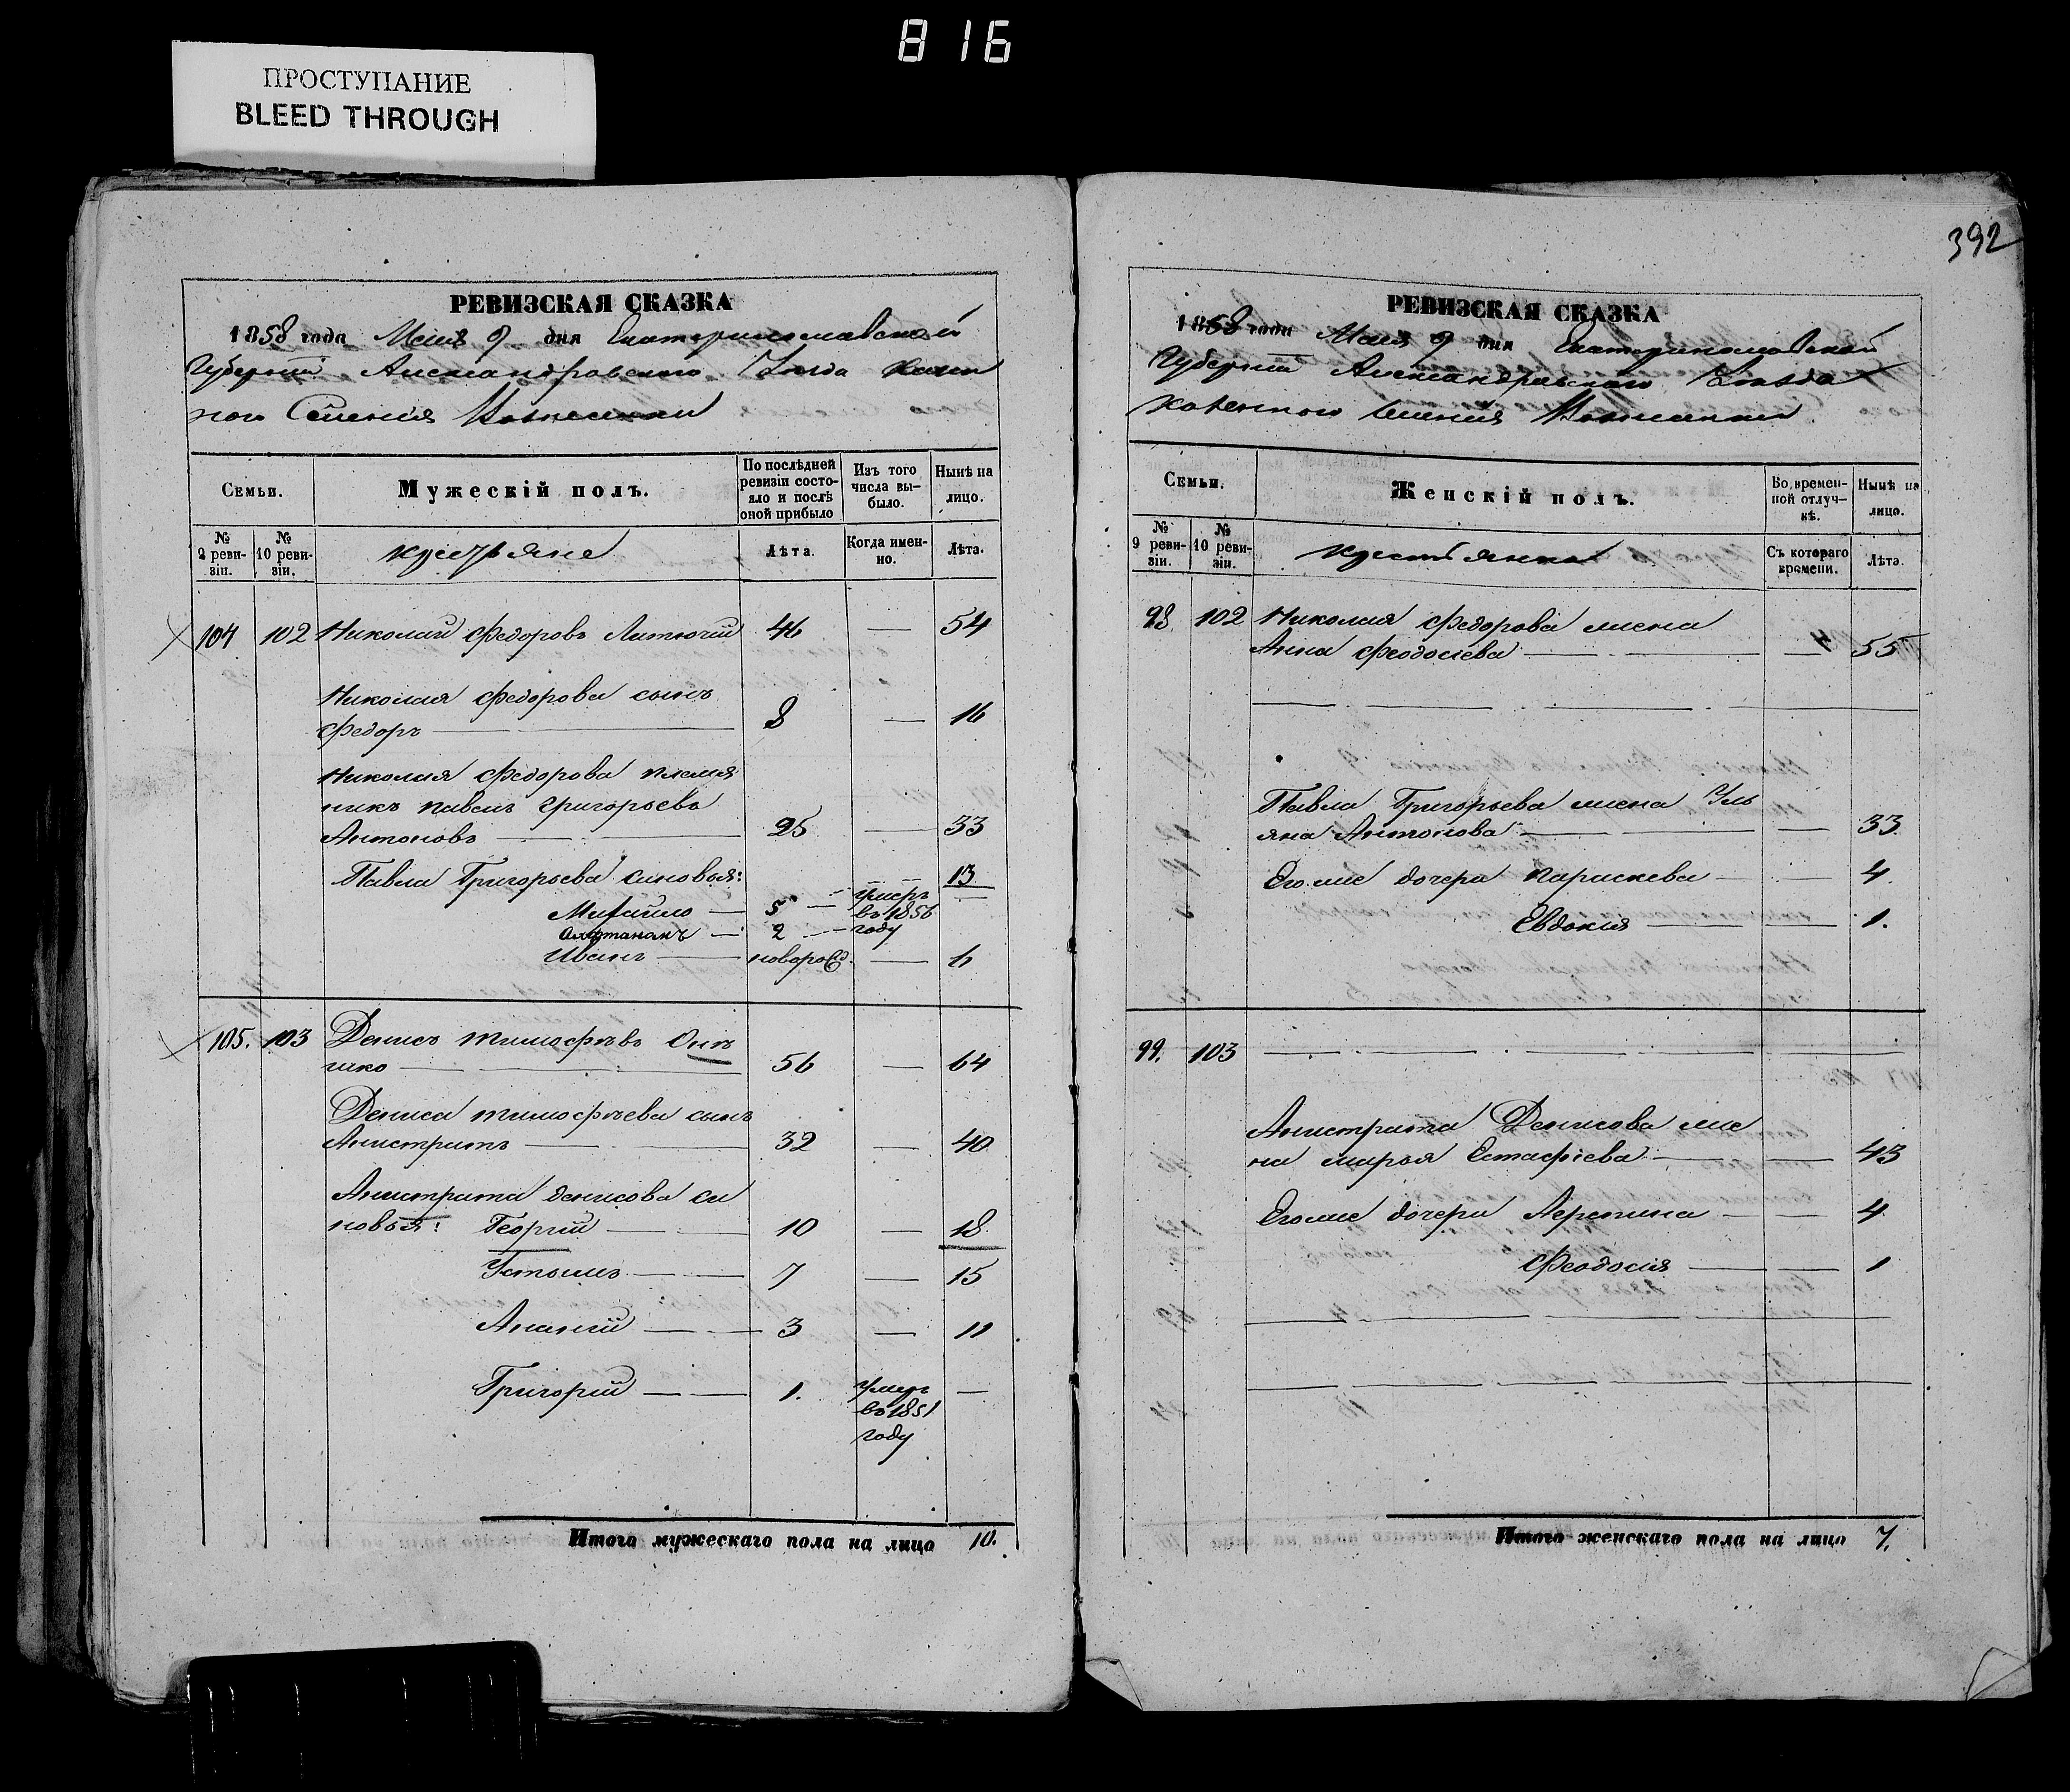 816
ПРОСТУПАНИЕ
BLEED THROUGH
РЕВИЗСКАЯ СКАЗКА
1858 года Мая 9 дня Екатеринославской
Губернии Александровского Уезда Казен
ного Селения
Семьи.
Мужескій полъ.
По послѣдней ревизіи состояло и послѣ оной прибыло
Изъ того числа выбыло.
Нынѣ на лицо.
№ 9 ревизіи.
№ 10 ревизіи.
крестьяне
Лѣта.
Когда именно.
Лѣта.
104 102 Николай Федоровъ 46 — 54
Николая Федорова сынъ
Федоръ — 8 — 16
Николая Федорова племя
никъ Павелъ Григорьевъ
Антоновъ — 25 — 33
Павла Григорьева сыновья: 13
Михайло — 5 — умеръ —
въ 1856
2 — году
Иванъ — новорожд. — 6
105. 103 Денисъ Тимофѣевъ
56 — 64
Дениса Тимофѣева сынъ
Анистратъ — 32 — 40
Анистрата Денисова сы
новья: Георгій — 10 — 18
Устымъ — 7 — 15
Ананій — 3 — 11
Григорій — 1. умеръ —
въ 1851
году
Итого мужескаго пола на лицо 10.
392
РЕВИЗСКАЯ СКАЗКА
1858 года Мая 9 дня Екатеринославской
Губернии Александровского Уезда
Казенного Селения
Семьи.
Женскій полъ.
Во временной отлучкѣ.
Нынѣ на лицо.
№ 9 ревизіи.
№ 10 ревизіи.
крестьянки
Съ котораго времени.
Лѣта.
98. 102 Николая Федорова жена
Анна Феодосіева — — 55
Павла Григорьева жена Уль
яна Антонова — — 33
Его же дочери Парискева — — 4.
Евдокія — — 1.
99. 103 —
Анистрата Денисова же
на Марья Естафіева — — 43
Его же дочери Агрепина — — 4
Феодосія — — 1
Итого женскаго пола на лицо 7.